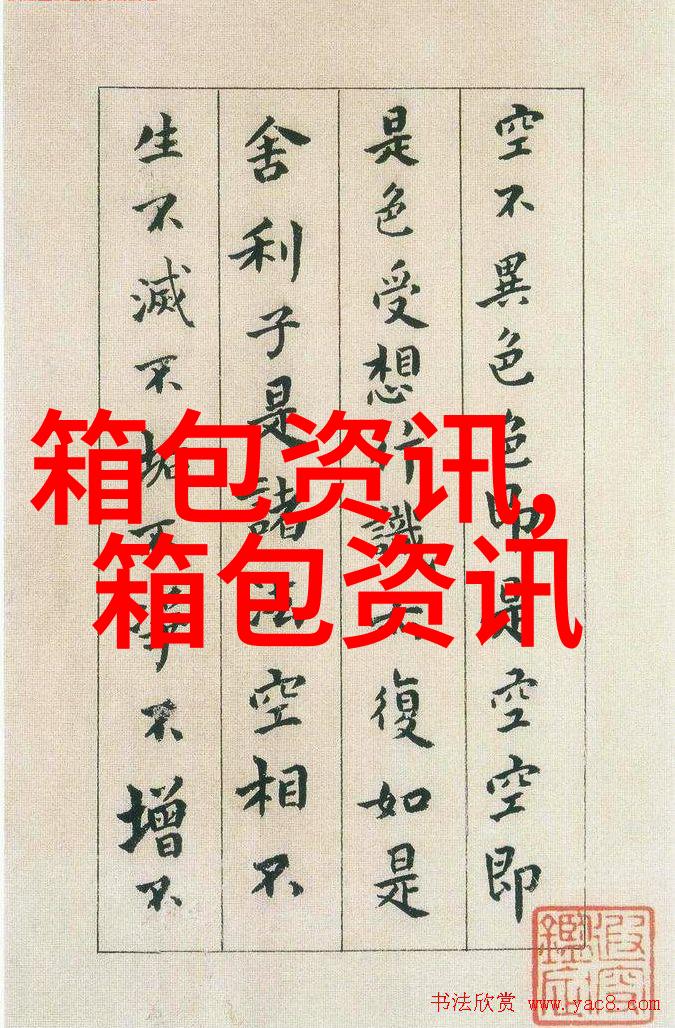 空不異色色即是空空即
是色受想行識亦復如是
舍利子是諸法空相不
生不滅不垢不淨不增不
箱包资讯,
箱包资讯
书法欣赏 www.yac8.com